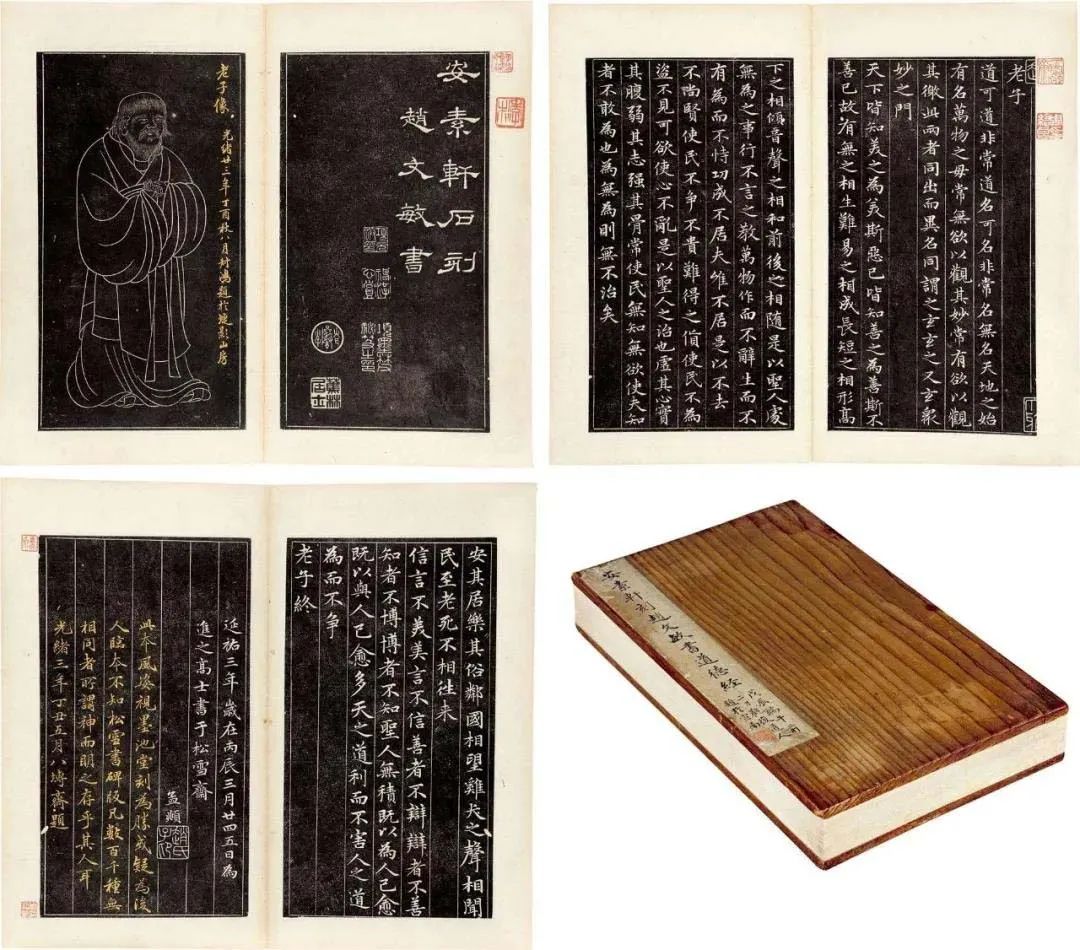 安素軒石刻
趙文敏書
老子像 光緒廿三年丁酉秋八月
老子
道可道非常道名可名非常名無名天地之始
有名萬物之母常無欲以觀其妙常有欲以觀
其徼此兩者同出而異名同謂之玄玄之又玄衆
妙之門
天下皆知美之為美斯惡已皆知善之為善斯不
善已故有無之相生難易之相成長短之相形高
下之相傾音聲之相和前後之相隨是以聖人處
無為之事行不言之教萬物作而不辭生而不
有為而不恃功成不居夫惟不居是以不去
不尚賢使民不爭不貴難得之貨使民不為
盜不見可欲使心不亂是以聖人之治也虛其心實
其腹弱其志强其骨常使民無知無欲使夫知
者不敢為也為無為則無不治矣
安其居樂其俗鄰國相望雞犬之聲相聞
民至老死不相往来
信言不美美言不信善者不辯辯者不善
知者不博博者不知聖人無積既以為人己愈
既以與人己愈多天之道利而不害人之道
為而不争
老子終
延祐三年歲在丙辰三月廿四五日為
進之高士書于松雪齋
孟頫
此本風姿視墨池堂刻為勝或疑為後
人臨本不知松雪書碑版凡數百千種無
相同者所謂神而明之存乎其人耳
光緒三年丁丑五月八塼齋題
安素軒刻趙文敏書道德經